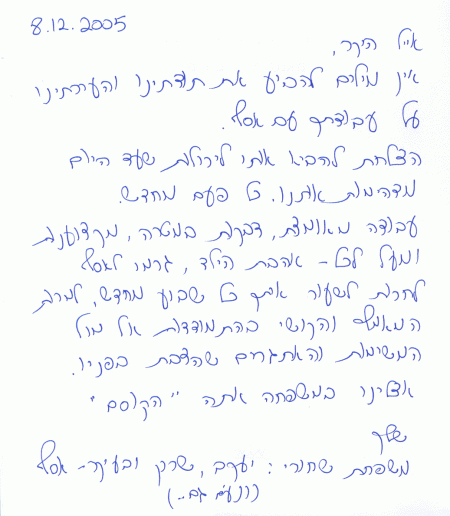 8.12.2005
אייל היקר,
אין מילים להביע את תודתינו והערכתינו
על עבודתך עם אסף.
הצלחת להביא אותו ליכולות שעד היום
מדהימות אותנו. כל פעם מחדש.
עבודה מאומצת, דבקות במטרה, מקצוענות
ומעל לכל - אהבת הילד, גרמו לאסף
לחכות לשעור איתך כל שבוע מחדש, למרות
המאמץ והקושי בהתמודדות אל מול
המשימות והאתגרים שהצבת בפניו.
אצלינו במשפחה אתה "הקוסם"
שלך
משפחת שחורי: יעקב, שרון ובעיקר - אסף
(ונועם גם..)